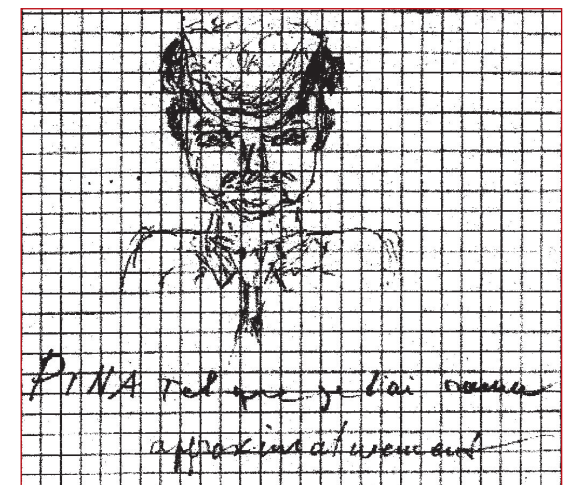 PINA Tel que je l'ai
approximativement